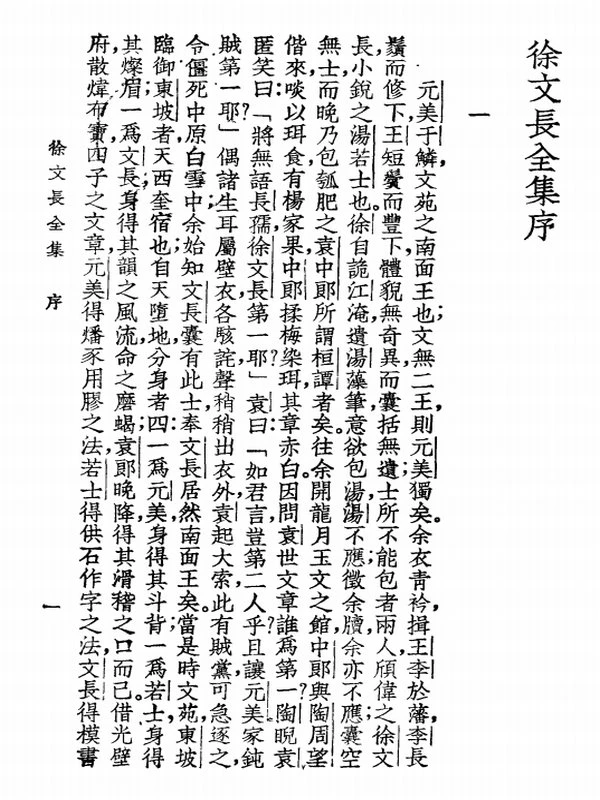 徐文長全集序
一
元美于鱗,文苑之南面王也;文無二王,則元美獨矣。余衣青衿,揖王李於藩,李長
鬚而修下,王短鬢而豐下,體貌無奇異,而囊括無遺士;所不能包者兩人,頎偉之徐文
長,小銳之湯若士也。徐自詭江淹,遺湯藻筆,意欲包湯,湯不應;徵余牘,余亦不應;囊空
無士,而晚乃包瓠肥之袁中郎,所謂桓譚者矣。往余開龍月玉文之館,中郎與陶周望
偕來,啖以珥食,有楊家果,中郎揉梅染珥,其章赤白。因問袁世文章誰爲第一?陶睨袁
匿笑曰:「將無語長孺徐文長第一耶?」袁曰:「如君言,豈第二人乎?且讓元美家鈍
賊第一耶?」偶諸生耳屬壁衣,各駭詫,聲稍稍出衣外,袁起大索,此有賊黨,可急逐之,
令僵死中原白雪中;余始知文長囊有此士,奉文長居然南面王矣。當是時,文苑東坡
臨御,東坡者,天西奎宿也,自天墮地,分身者四:一爲元美,身得其斗背;一爲若士,身得
其燦眉;一爲文長,身得其韻之風流,命之磨蝎;袁郎晚降,得其滑稽之口而已。借光壁
府,散煒布寶,四子之文章,元美得燔豕用膠之法,若士得供石作字之法,文長得模書
徐文長全集 序
一